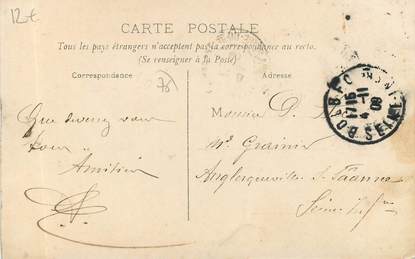 12€
CARTE POSTALE
Tous les pays étrangers n'acceptent pas la correspondance au recto.
(Se renseigner à la Poste)
Correspondance
Adresse
76
BOLBEC
17 15
4 - 11
08
SEINE INF
Que devenez vous
tous
Amitiés
Monsieur D.
Grainier
Anglesqueville
Seine Infre